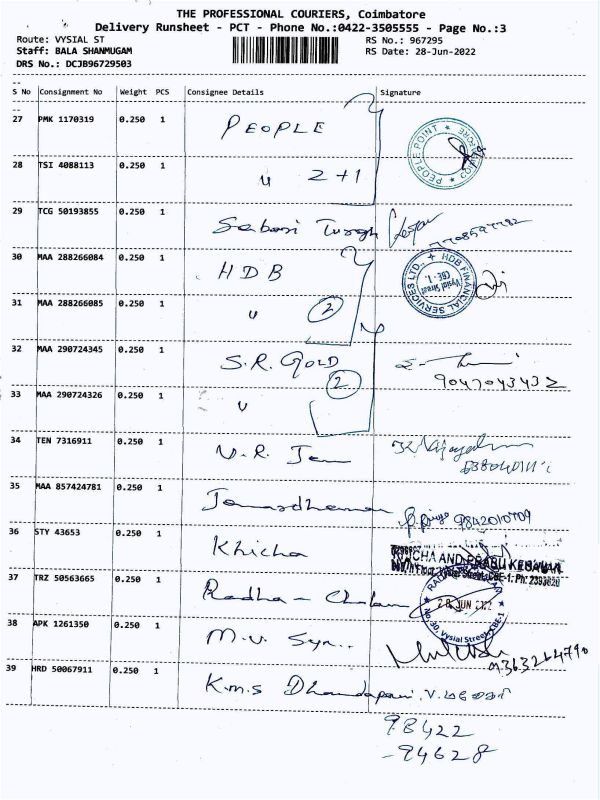 THE PROFESSIONAL COURIERS, Coimbatore
Delivery Runsheet - PCT - Phone No.:0422-3505555 - Page No.:3
Route: VYSIAL ST RS No.: 967295
Staff: BALA SHANMUGAM RS Date: 28-Jun-2022
DRS No.: DCJB96729503
S No Consignment No Weight PCS Consignee Details Signature
27 PMK 1170319 0.250 1 PEOPLE
PEOPLE POINT
28 TSI 4088113 0.250 1 u 2+1
29 TCG 50193855 0.250 1
30 MAA 288266084 0.250 1 HDB
HDB FINANCIAL SERVICES LTD.,
Vysial Street
CBE - 1.
31 MAA 288266085 0.250 1 u 2
32 MAA 290724345 0.250 1 S.R. GOLD
9047043432
33 MAA 290724326 0.250 1 u 2
34 TEN 7316911 0.250 1
35 MAA 857424781 0.250 1 9842010709
36 STY 43653 0.250 1 Khicha
37 TRZ 50563665 0.250 1 Radha -
28 JUN 2022
No. 30, Vysial Street, CBE-1
38 APK 1261350 0.250 1 M.V.
9363264790
39 HRD 50067911 0.250 1 K.m.s Dhandapani
98422
-94628